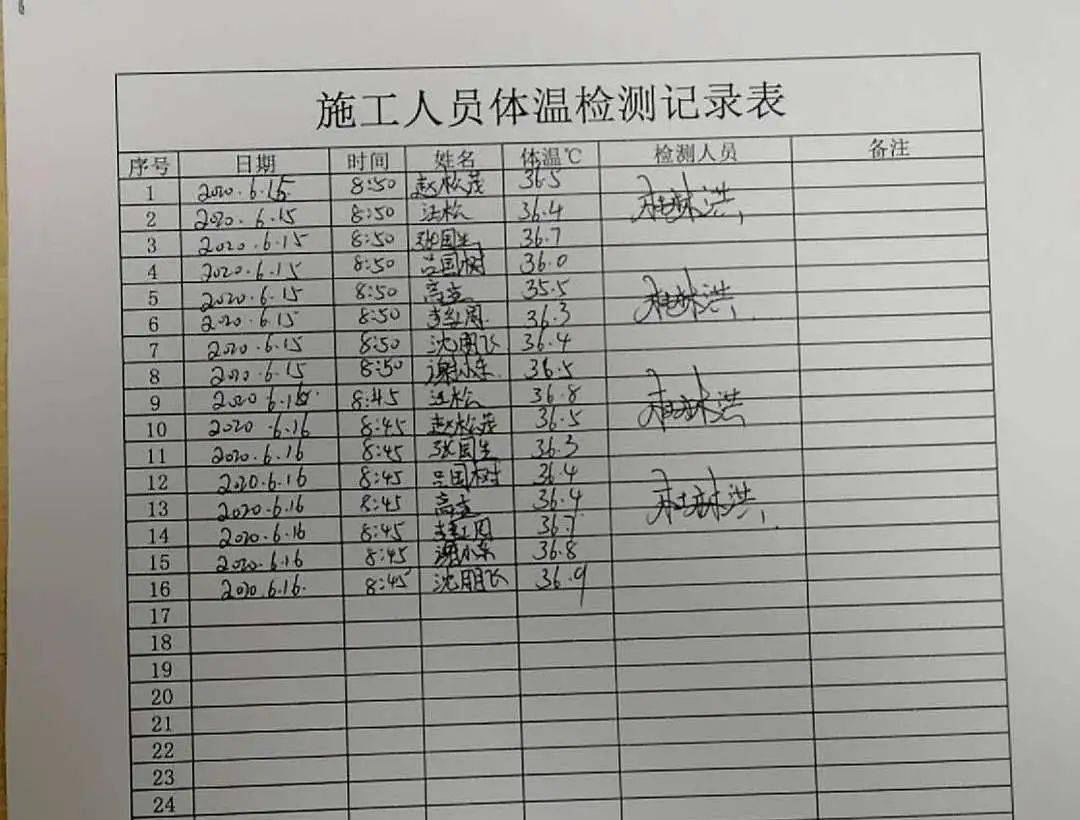 施工人员体温检测记录表
序号 日期 时间 姓名 体温℃ 检测人员 备注
1 2020.6.15 8:50 赵松茂 36.5
2 2020.6.15 8:50 汪松 36.4
3 2020.6.15 8:50 张国生 36.7
4 2020.6.15 8:50 吕国树 36.0
5 2020.6.15 8:50 高立 35.5
6 2020.6.15 8:50 李红周 36.3
7 2020.6.15 8:50 沈朋飞 36.4
8 2020.6.15 8:50 谢小东 36.5
9 2020 6.16 8:45 汪松 36.8
10 2020.6.16 8:45 赵松茂 36.5
11 2020.6.16 8:45 张国生 36.3
12 2020.6.16 8:45 吕国树 36.4
13 2020.6.16 8:45 高立 36.4
14 2020.6.16 8:45 李红周 36.7
15 2020.6.16 8:45 谢小东 36.8
16 2020.6.16. 8:45 沈朋飞 36.9
17
18
19
20
21
22
23
24